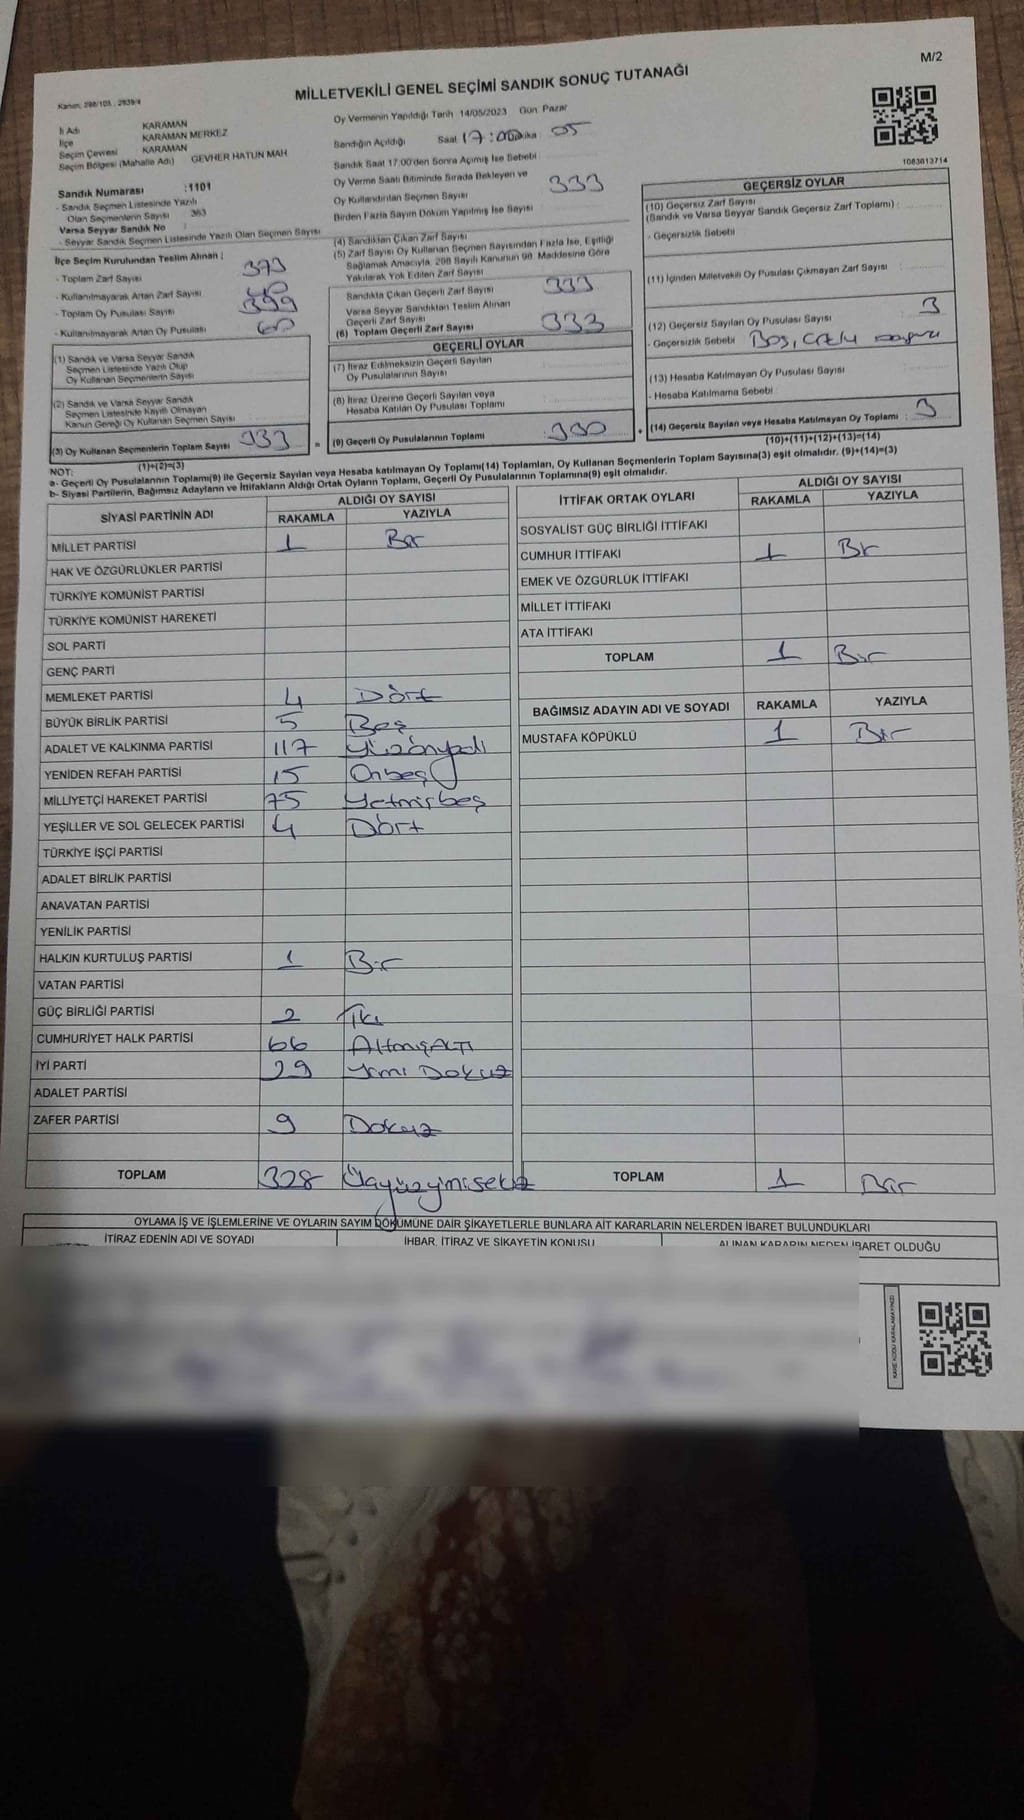 M/2
MİLLETVEKİLİ GENEL SEÇİMİ SANDIK SONUÇ TUTANAĞI
Kanun: 298/103, 2839/4
İl Adı KARAMAN
İlçe KARAMAN MERKEZ
Seçim Çevresi KARAMAN
Seçim Bölgesi (Mahalle Adı) GEVHER HATUN MAH
Sandık Numarası :1101
- Sandık Seçmen Listesinde Yazılı
Olan Seçmenlerin Sayısı 363
Varsa Seyyar Sandık No
- Seyyar Sandık Seçmen Listesinde Yazılı Olan Seçmen Sayısı
Oy Vermenin Yapıldığı Tarih 14/05/2023 Gün Pazar
Sandığın Açıldığı Saat 17:00 Dakika 05
Sandık Saat 17:00'den Sonra Açmış İse Sebebi
Oy Verme Saati Bitiminde Sırada Bekleyen ve
Oy Kullandırılan Seçmen Sayısı 333
Birden Fazla Sayım Döküm Yapılmış İse Sayısı
1083813714
İlçe Seçim Kurulundan Teslim Alınan :
- Toplam Zarf Sayısı 373
- Kullanılmayarak Artan Zarf Sayısı 40
- Toplam Oy Pusulası Sayısı
- Kullanılmayarak Artan Oy Pusulası
(1) Sandık ve Varsa Seyyar Sandık
Seçmen Listesinde Yazılı Olup
Oy Kullanan Seçmenlerin Sayısı
(2) Sandık ve Varsa Seyyar Sandık
Seçmen Listesinde Kayıtlı Olmayan
Kanun Gereği Oy Kullanan Seçmen Sayısı
(3) Oy Kullanan Seçmenlerin Toplam Sayısı 333
(1)+(2)=(3)
(4) Sandıktan Çıkan Zarf Sayısı
(5) Zarf Sayısı Oy Kullanan Seçmen Sayısından Fazla İse, Eşitliği
Sağlamak Amacıyla, 298 Sayılı Kanunun 98. Maddesine Göre
Yakılarak Yok Edilen Zarf Sayısı
Sandıkta Çıkan Geçerli Zarf Sayısı 333
Varsa Seyyar Sandıktan Teslim Alınan
Geçerli Zarf Sayısı
(6) Toplam Geçerli Zarf Sayısı 333
GEÇERLİ OYLAR
(7) İtiraz Edilmeksizin Geçerli Sayılan
Oy Pusulalarının Sayısı
(8) İtiraz Üzerine Geçerli Sayılan veya
Hesaba Katılan Oy Pusulası Toplamı
= (9) Geçerli Oy Pusulalarının Toplamı : 330 +
GEÇERSİZ OYLAR
(10) Geçersiz Zarf Sayısı
(Sandık ve Varsa Seyyar Sandık Geçersiz Zarf Toplamı) :
- Geçersizlik Sebebi
(11) İçinden Milletvekili Oy Pusulası Çıkmayan Zarf Sayısı
(12) Geçersiz Sayılan Oy Pusulası Sayısı 3
- Geçersizlik Sebebi Boş,
(13) Hesaba Katılmayan Oy Pusulası Sayısı
- Hesaba Katılmama Sebebi
(14) Geçersiz Sayılan veya Hesaba Katılmayan Oy Toplamı : 3
(10)+(11)+(12)+(13)=(14)
NOT:
a- Geçerli Oy Pusulalarının Toplamı(9) ile Geçersiz Sayılan veya Hesaba katılmayan Oy Toplamı(14) Toplamları, Oy Kullanan Seçmenlerin Toplam Sayısına(3) eşit olmalıdır. (9)+(14)=(3)
b- Siyasi Partilerin, Bağımsız Adayların ve İttifakların Aldığı Ortak Oyların Toplamı, Geçerli Oy Pusulalarının Toplamına(9) eşit olmalıdır.
SİYASİ PARTİNİN ADI ALDIĞI OY SAYISI
RAKAMLA YAZIYLA
MİLLET PARTİSİ 1 Bir
HAK VE ÖZGÜRLÜKLER PARTİSİ
TÜRKİYE KOMÜNİST PARTİSİ
TÜRKİYE KOMÜNİST HAREKETİ
SOL PARTİ
GENÇ PARTİ
MEMLEKET PARTİSİ 4 Dört
BÜYÜK BİRLİK PARTİSİ 5 Beş
ADALET VE KALKINMA PARTİSİ 117 Yüzonyedi
YENİDEN REFAH PARTİSİ 15 Onbeş
MİLLİYETÇİ HAREKET PARTİSİ 75 Yetmişbeş
YEŞİLLER VE SOL GELECEK PARTİSİ 4 Dört
TÜRKİYE İŞÇİ PARTİSİ
ADALET BİRLİK PARTİSİ
ANAVATAN PARTİSİ
YENİLİK PARTİSİ
HALKIN KURTULUŞ PARTİSİ 1 Bir
VATAN PARTİSİ
GÜÇ BİRLİĞİ PARTİSİ 2 İki
CUMHURİYET HALK PARTİSİ 66 AltmışAltı
İYİ PARTİ 29 Yirmi Dokuz
ADALET PARTİSİ
ZAFER PARTİSİ 9 Dokuz
TOPLAM 328 Üçyüzyirmisekiz
İTTİFAK ORTAK OYLARI ALDIĞI OY SAYISI
RAKAMLA YAZIYLA
SOSYALİST GÜÇ BİRLİĞİ İTTİFAKI
CUMHUR İTTİFAKI 1 Bir
EMEK VE ÖZGÜRLÜK İTTİFAKI
MİLLET İTTİFAKI
ATA İTTİFAKI
TOPLAM 1 Bir
BAĞIMSIZ ADAYIN ADI VE SOYADI RAKAMLA YAZIYLA
MUSTAFA KÖPÜKLÜ 1 Bir
TOPLAM 1 Bir
OYLAMA İŞ VE İŞLEMLERİNE VE OYLARIN SAYIM DÖKÜMÜNE DAİR ŞİKAYETLERLE BUNLARA AİT KARARLARIN NELERDEN İBARET BULUNDUKLARI
İTİRAZ EDENİN ADI VE SOYADI İHBAR, İTİRAZ VE ŞİKAYETİN KONUSU ALINAN KARARIN NEDEN İBARET OLDUĞU
KARE KODU KARALAMAYINIZ!